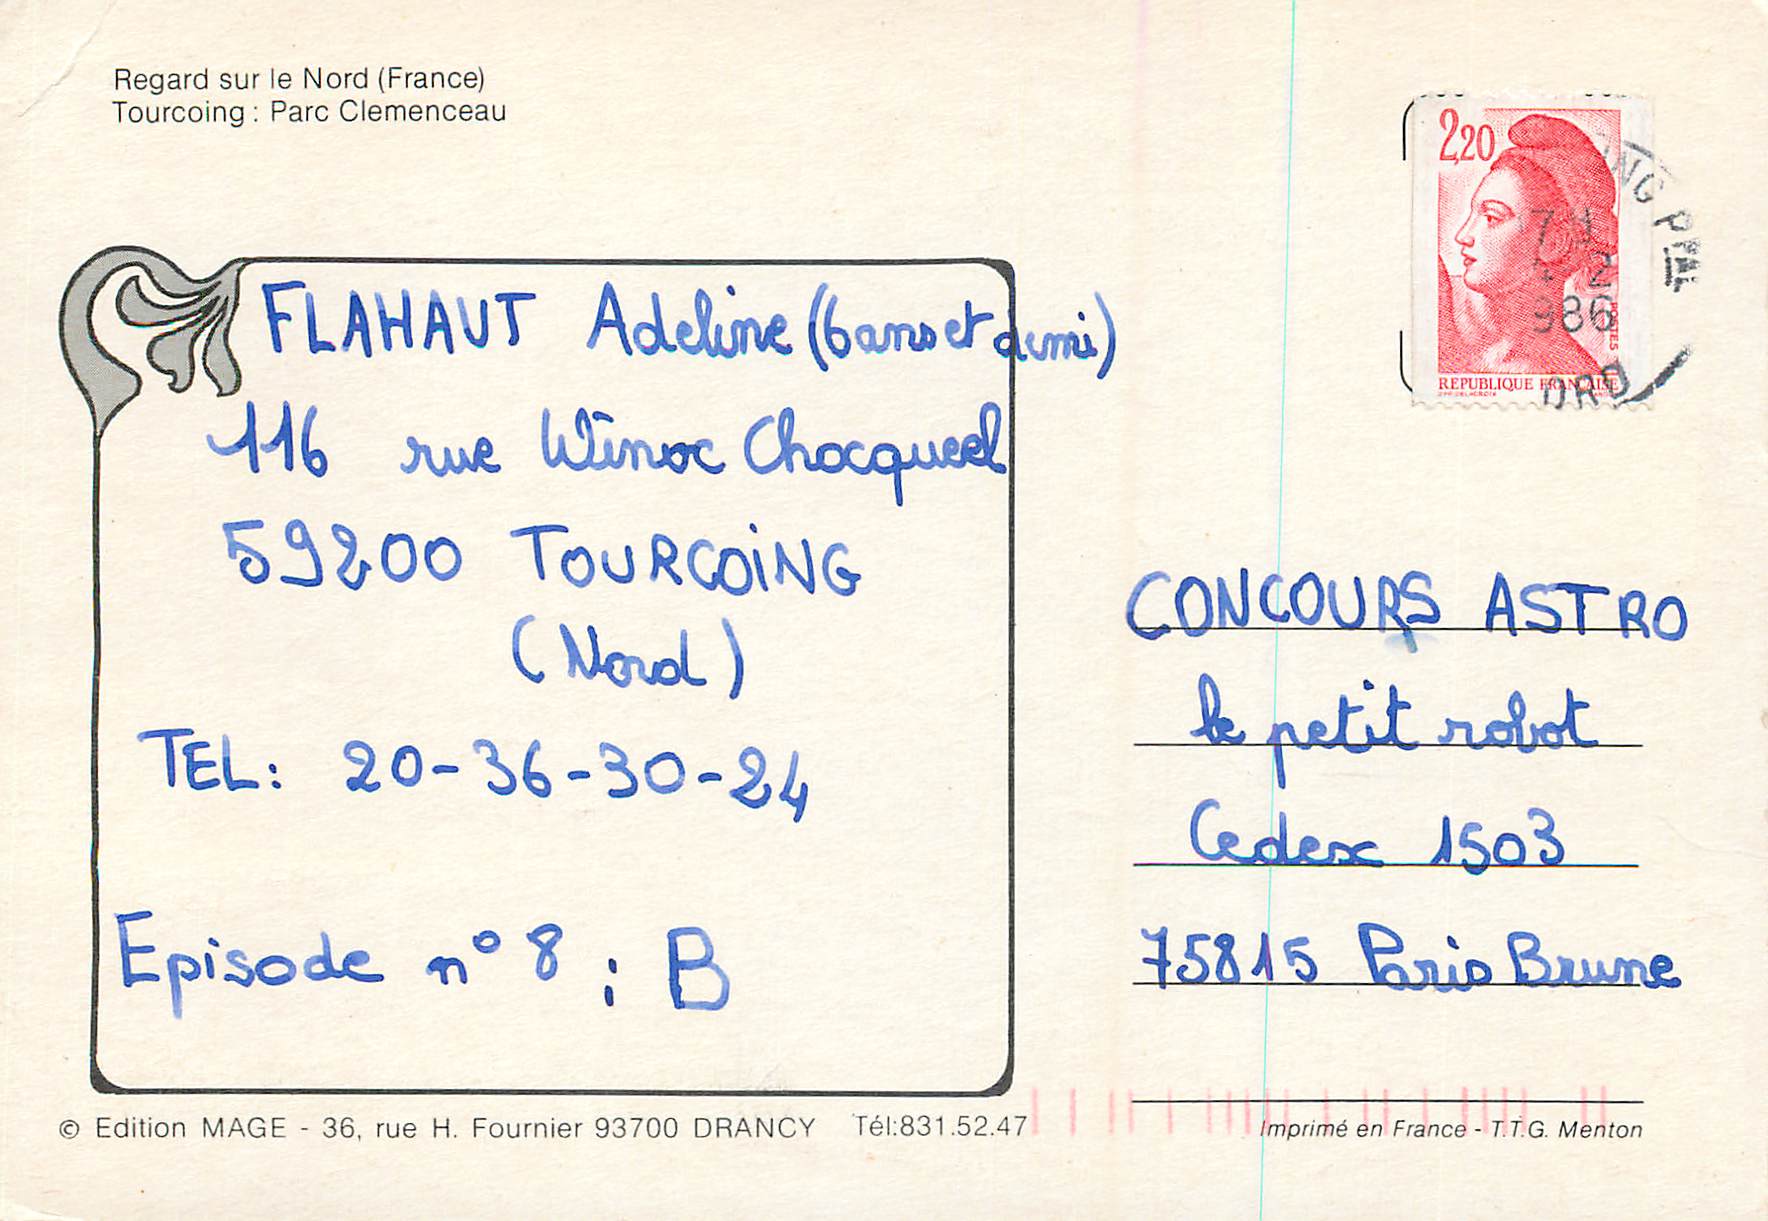 Regard sur le Nord (France)
Tourcoing : Parc Clemenceau
2,20
REPUBLIQUE FRANÇAISE
986
FLAHAUT Adeline (6 ans et demi)
116 rue Winoc Chocqueel
59200 TOURCOING
(Nord)
TEL: 20-36-30-24
Episode n° 8 : B
CONCOURS ASTRO
le petit robot
Cedex 1503
75815 Paris Brune
© Edition MAGE - 36, rue H. Fournier 93700 DRANCY Tél:831.52.47
Imprimé en France - T.T.G. Menton